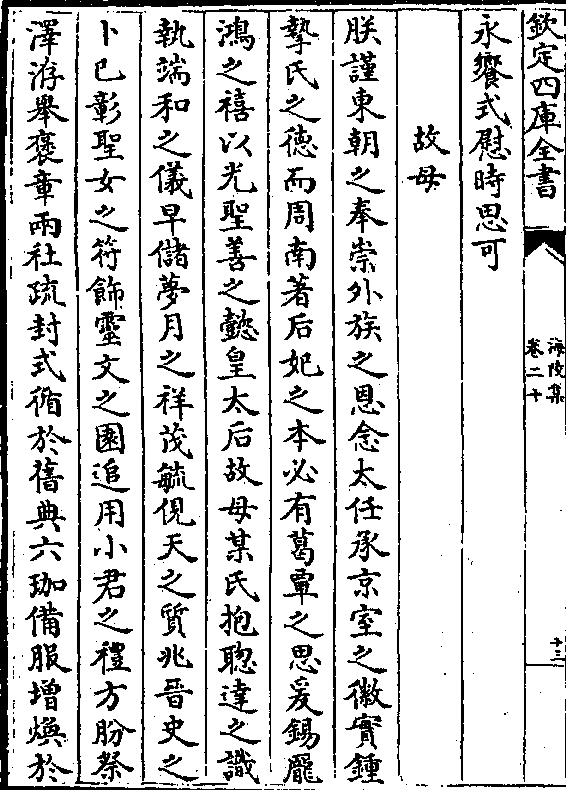 欽定四庫全書
海陵集
卷二十
十三
永饗式慰時思可
故母
朕謹東朝之奉崇外族之恩念太任承京室之徽實鍾
摯氏之德而周南著后妃之本必有葛覃之思爰錫龎
鴻之禧以光聖善之懿皇太后故母某氏抱聰達之識
執端和之儀早儲夢月之祥茂毓俔天之質兆晉史之
卜已彰聖女之符飾靈文之園追用小君之禮方肦祭
澤洊舉褒章兩社疏封式循於舊典六珈備服增煥於